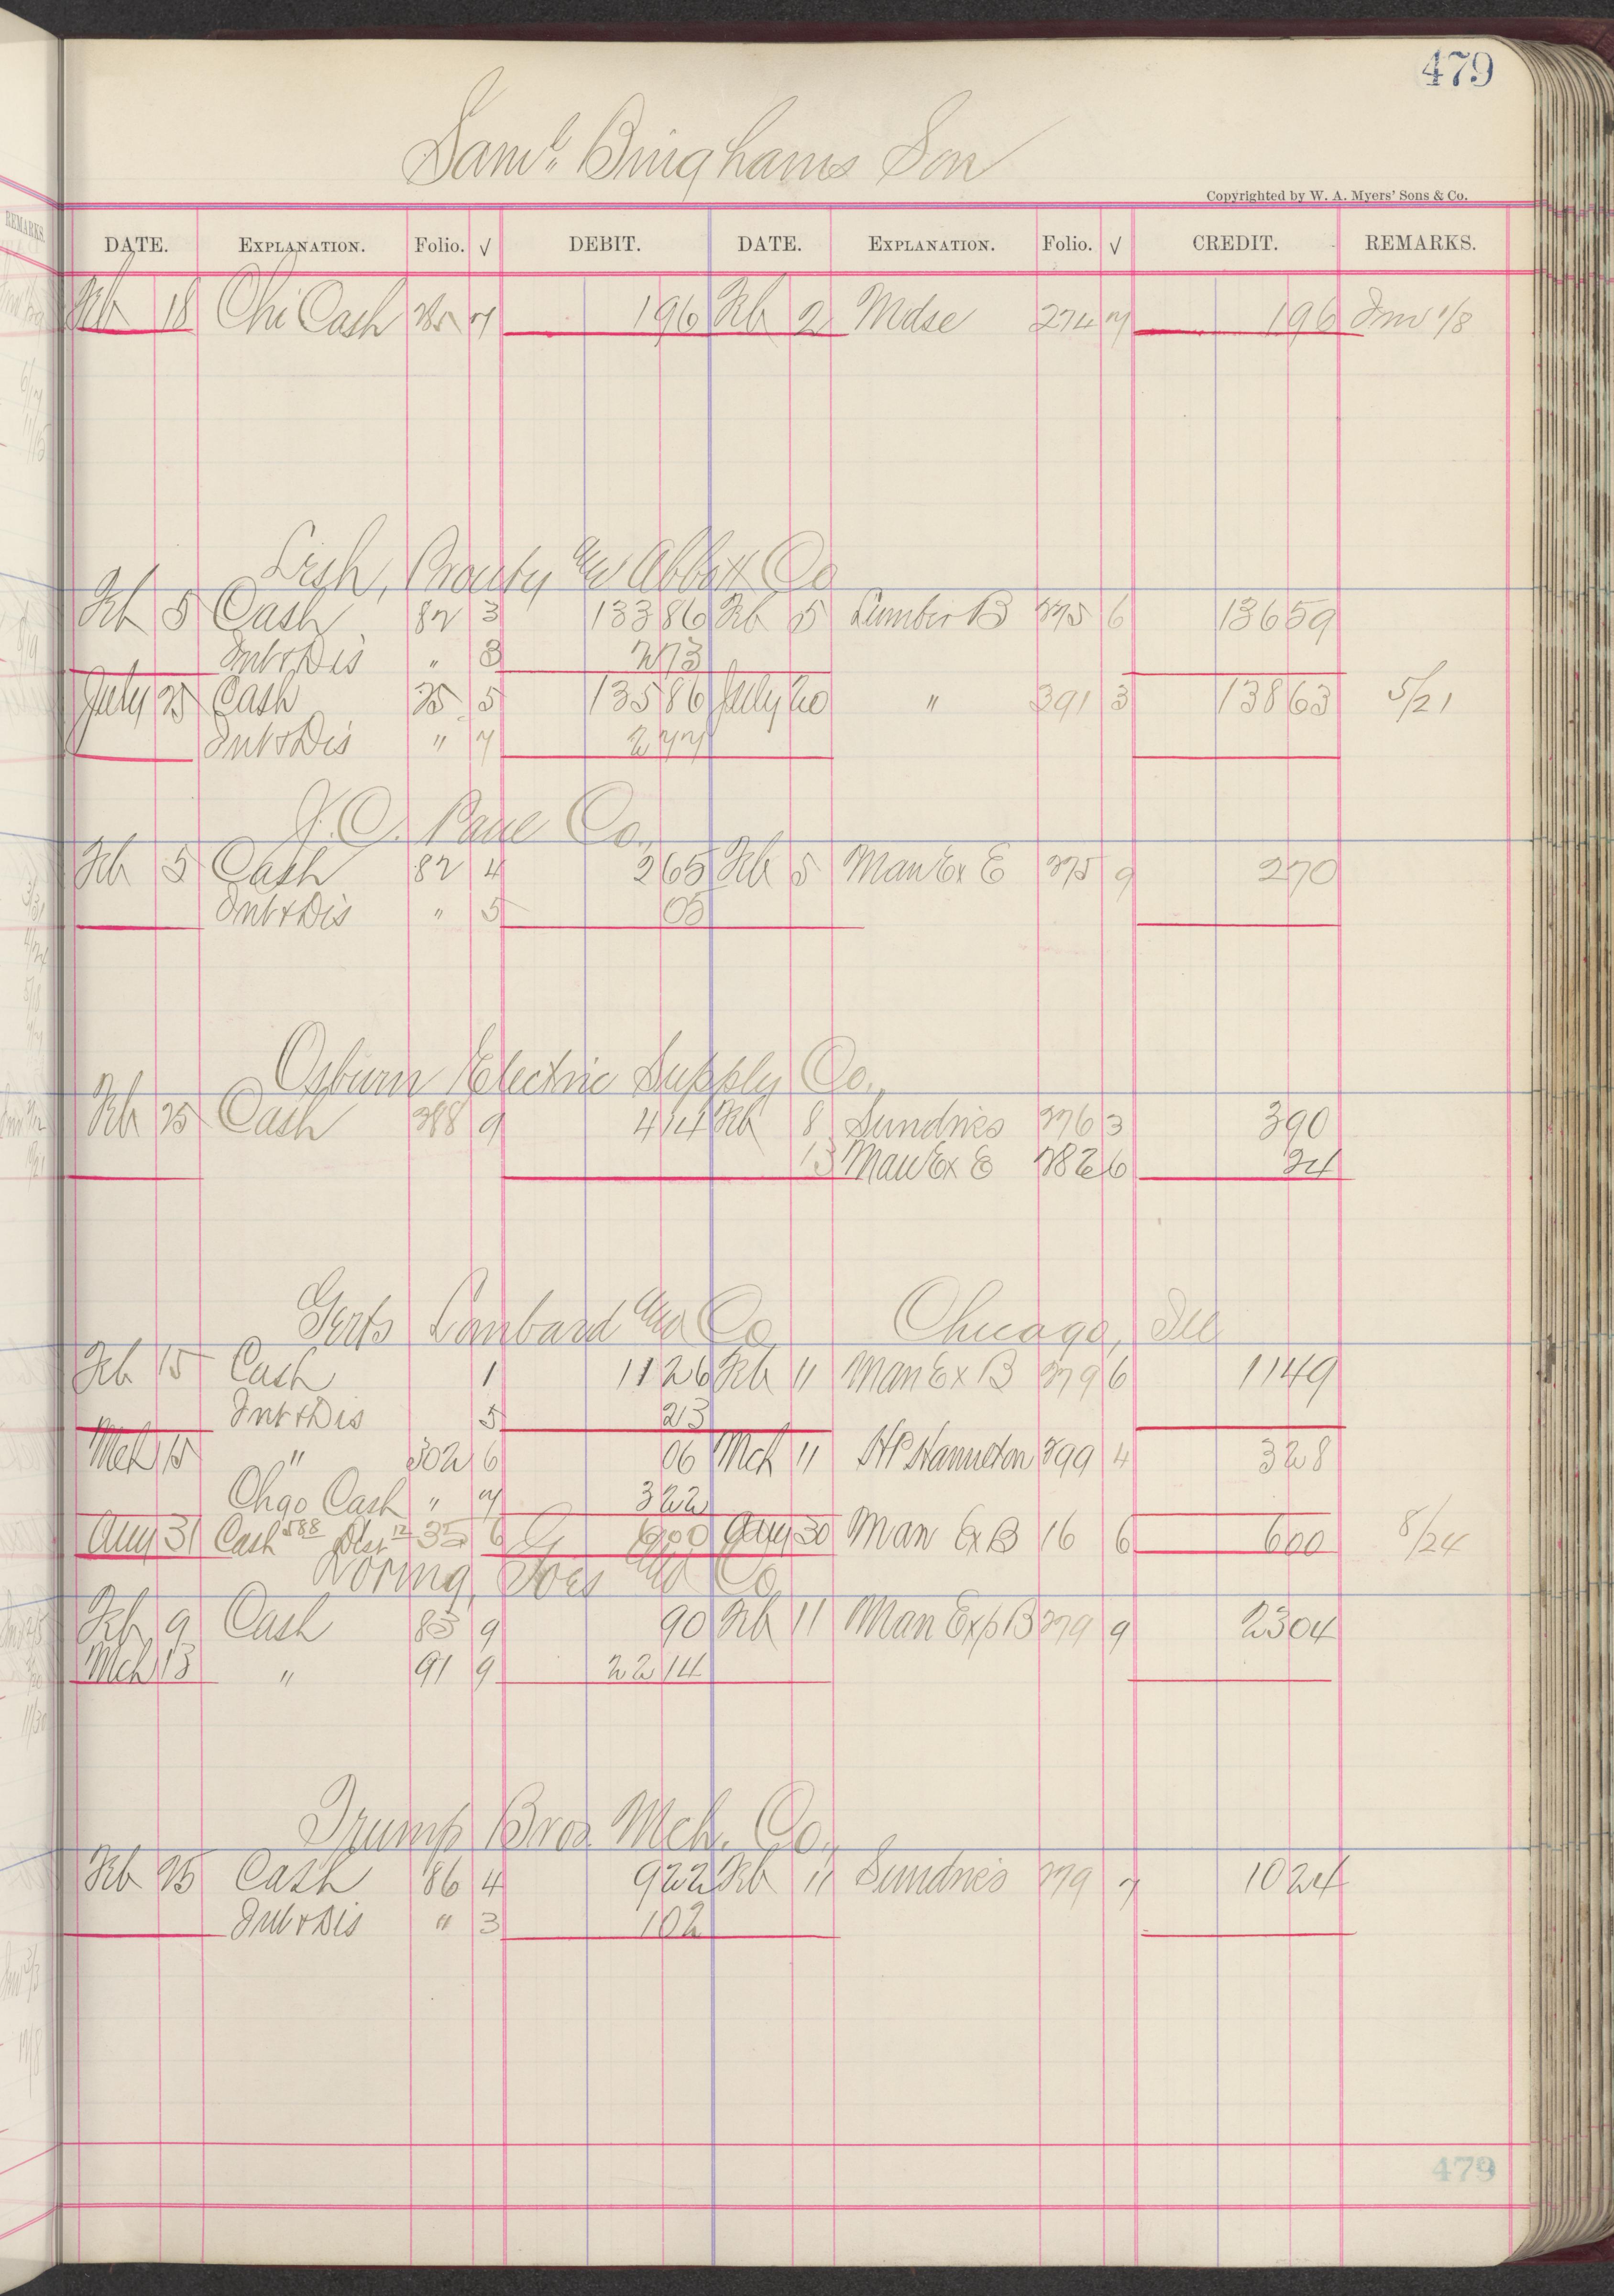 479
Saml. Binghams Son
Copyrighted by W. A. Myers' Sons & Co.
DATE. EXPLANATION. Folio. √ DEBIT. DATE. EXPLANATION. Folio. √ CREDIT. REMARKS.
Feb 18 Chi Cash 285 7 1 96 Feb 2 Mdse 274 7 1 96 Inv 1/8
Lish, Prouty and Abbott Co
Feb 5 Cash 82 3 133 86 Feb 5 Lumber B 275 6 136 59
Int & Dis " 8 2 73
July 25 Cash 25 5 135 86 July 20 " 391 3 138 63 5/21
Int & Dis " 7 2 77
J. C. Paul Co.
Feb 5 Cash 82 4 2 65 Feb 5 Man Ex E 275 9 2 70
Int & Dis " 5 05
Osburn Electric Supply Co.
Feb 25 Cash 288 9 4 14 Feb 8 Sundries 276 3 3 90
13 Man Ex E 282 6 24
Gerts Lombard and Co Chicago, Ill
Feb 15 Cash 1 11 26 Feb 11 Man Ex B 279 6 11 49
Int & Dis 5 23
Mch 15 " 302 6 06 Mch 11 H P Hamilton 299 4 3 28
Chgo Cash " 7 3 22
Aug 31 Cash 588 Dis 12 35 6 6 00 Aug 30 Man Ex B 16 6 6 00 8/24
Loring, Goes and Co
Feb 9 Cash 83 9 90 Feb 11 Man Exp B 279 9 23 04
Mch 13 " 91 9 22 14
Trump Bros. Mch. Co.,
Feb 25 Cash 86 4 9 22 Feb 11 Sundries 279 7 10 24
Int & Dis " 3 1 02
479